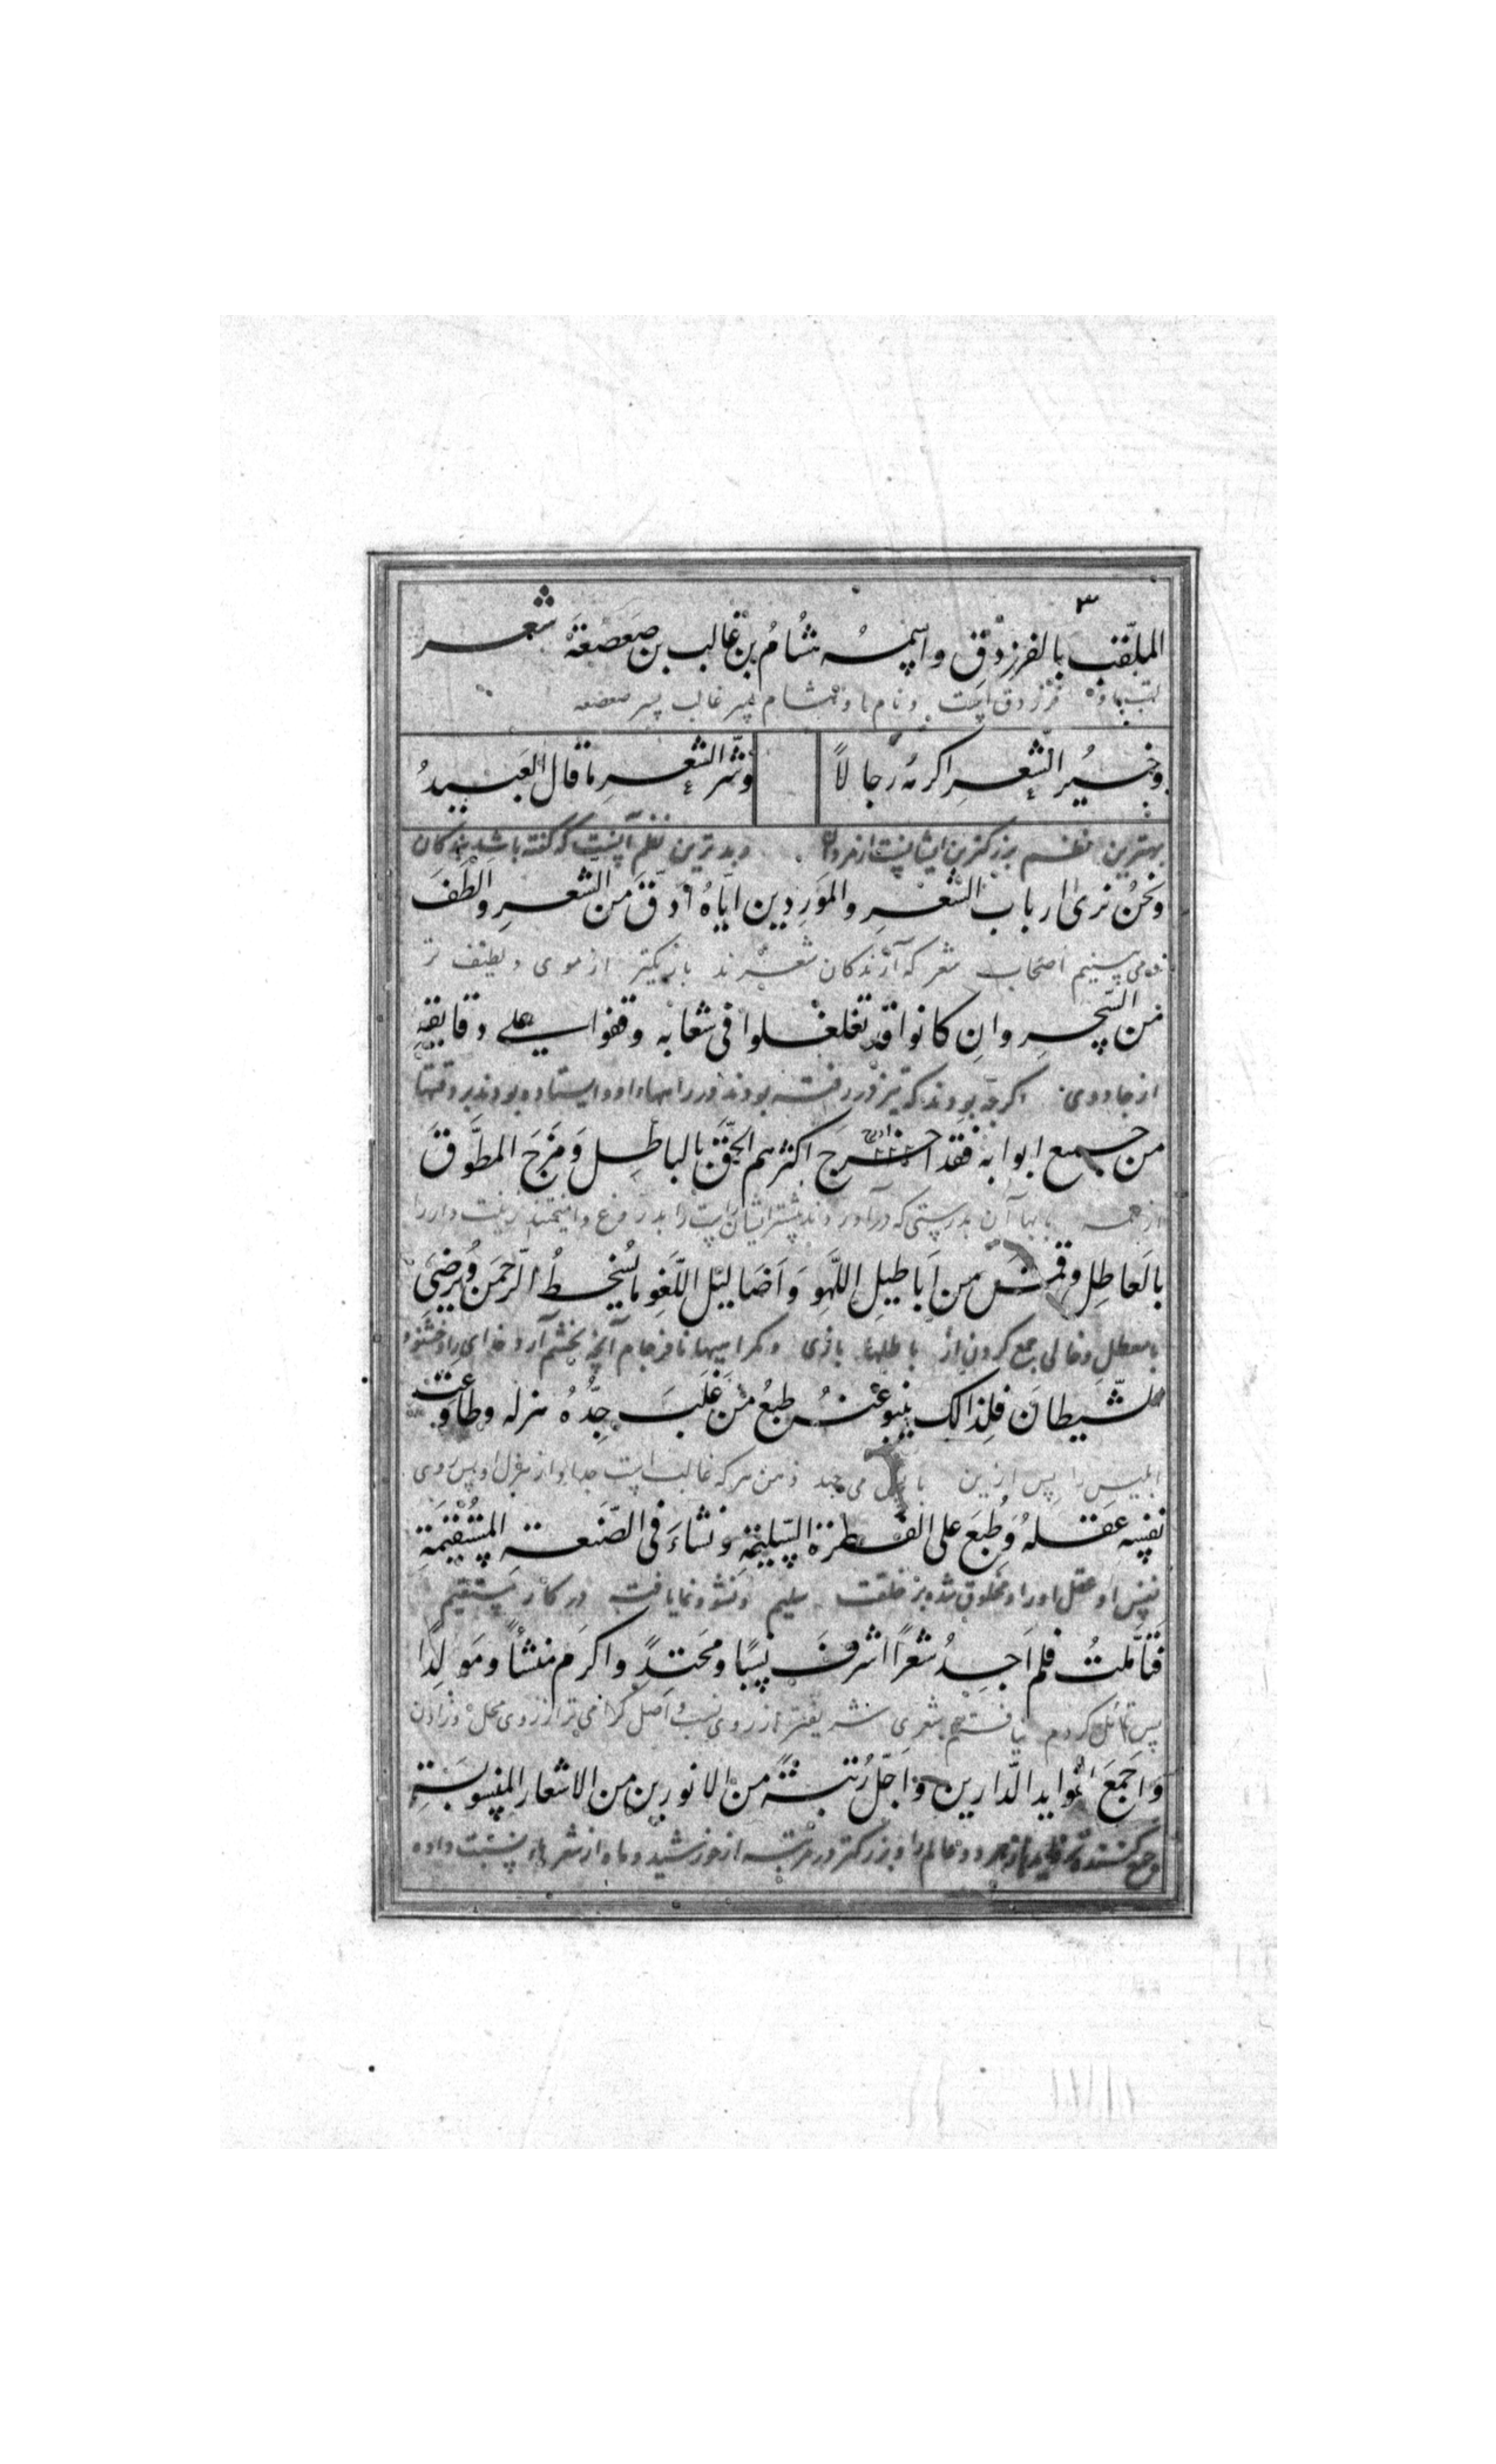 ٣
الملقب بالفرزدق واسمه هشام بن غالب بن صعصعة شعر
لقب فرزدق است و نام او هشام پسر غالب پسر صعصعه
وخيرُ الشّعرِ اكرمه رجالاً وشرّ الشعرِ ما قال العبيدُ
بهترین نظم بزرگترین ایشانست از مردان وبدترین نظم آنست که گفته باشد بندگان
ونحنُ نرى ارباب الشعرِ والموردين ايّاهُ ادقّ من الشعرِ والطفَ
می بینیم اصحاب شعر که آرندگان شعرند باریکتر از موی و لطیف تر
من السحرِ وان كانوا قد تغلغلوا فى شعابه وقفوا على دقايقهِ
از جادوی اگرچه بودند که نیز در رفته بودند در راهها او و ایستاده بودند بر دقتها
من جميع ابوابه فقد اخرجَ اكثرهم الحقّ بالباطلِ وَمَزجَ المطوّقَ
از همه بابها آن بدرستی که در آوردند بیشتر ایشان راست را بدروغ وامیختند زینت دار را
بالعاطل و من اَباطيلِ اللّهوِ وَاَضاليلِ اللّغوِ ما يُسخطُ الرّحمنَ ويُرضىَ
با معطل وخالی جمع کردن از باطلها بازی و گمراهیها نافرجام آنچه بخشم آرد خدای را و خشنود
الشّيطانَ فلِذالك ينبو عنهُ طبعُ منَ غلَبَ جِدُّهُ هزله وطاوعت
ابلیس را پس ازین می جهد ذهن هر که غالب است جد او از هزل او پس روی
نفسهِ عقلهُ وَطُبعَ على الفطرة السّليمةِ ونشاءَ فى الصّنعةِ المستقيمةِ
نفس او عقل او را و مخلوق شده بر خلقت سلیم ونشو ونما یافت در کار مستقیم
فتأمّلتُ فلم اَجِدُ شعراً اشرفَ نسباً ومحتدٍ واكرَم منشأً ومَولِداً
پس تأمل کردم نیافتم شعری شریفتر از روی نسب و اصل گرامی تر از روی محل و زادن
وَاَجمعَ لفوايد الدّارين واَجلّ رُتبةً من الانورين من الاشعار المنسوبةِ
و جمع کننده تر دو عالم را و بزرگتر در مرتبه از خورشید و ماه از شعرها نسبت داده